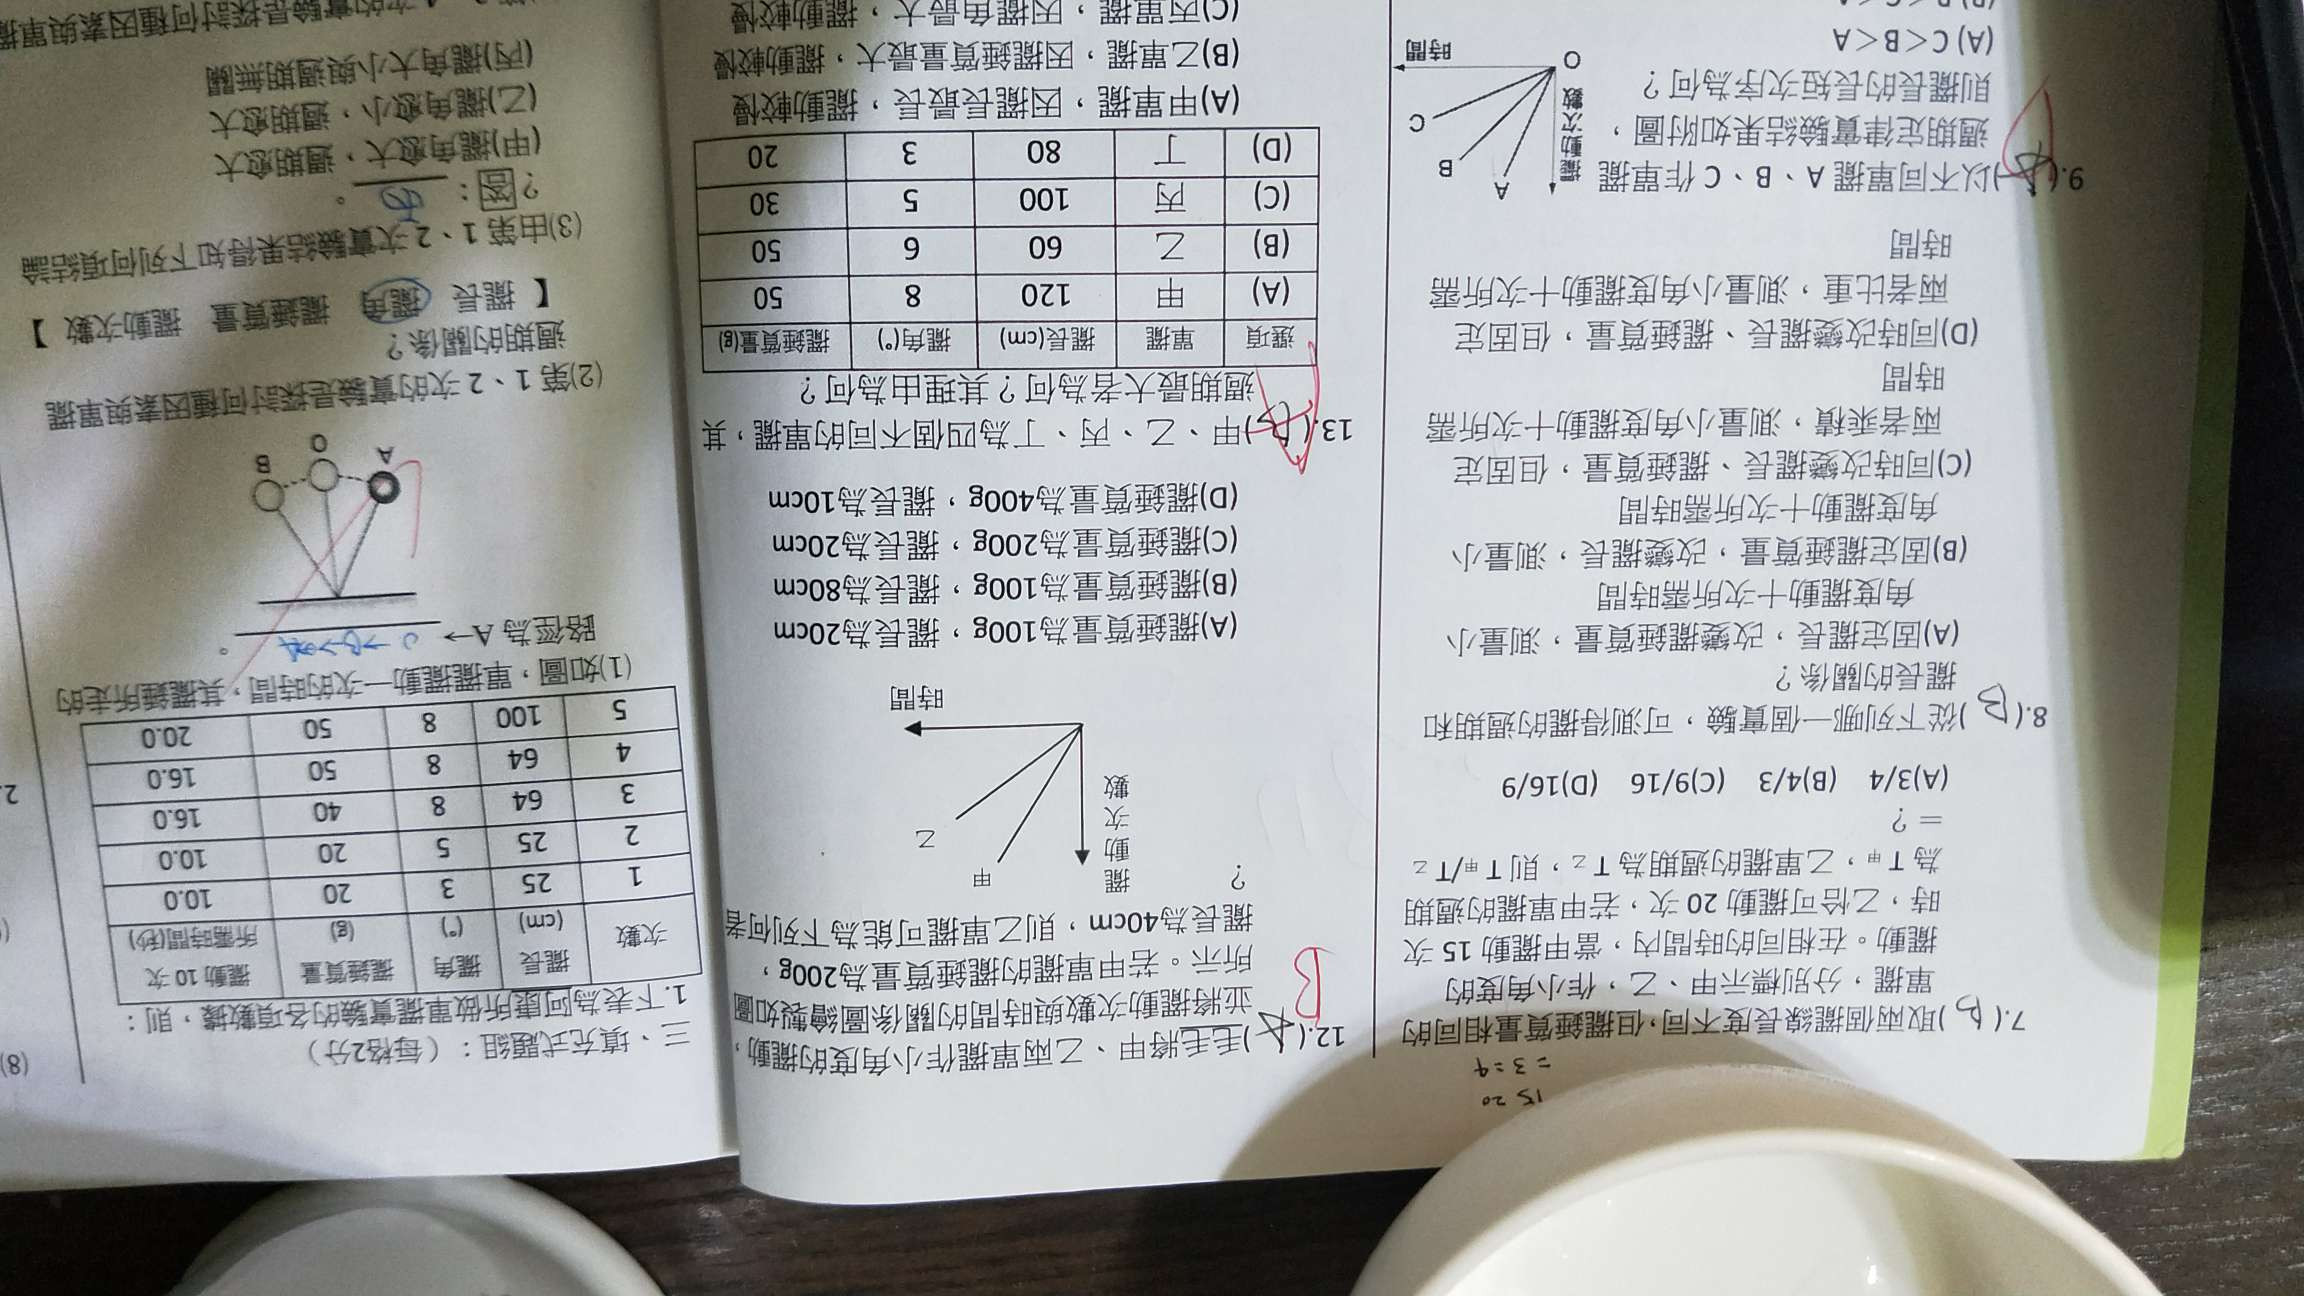 15 20
= 3 = 4
7.( B )取兩個擺線長度不同,但擺錘質量相同的
單擺,分別標示甲、乙,作小角度的
擺動。在相同的時間內,當甲擺動 15 次
時,乙恰可擺動 20 次,若甲單擺的週期
為 T甲,乙單擺的週期為 T乙,則 T甲/T乙
=?
(A)3/4 (B)4/3 (C)9/16 (D)16/9
8.( B )從下列哪一個實驗,可測得擺的週期和
擺長的關係?
(A)固定擺長,改變擺錘質量,測量小
角度擺動十次所需時間
(B)固定擺錘質量,改變擺長,測量小
角度擺動十次所需時間
(C)同時改變擺長、擺錘質量,但固定
兩者乘積,測量小角度擺動十次所需
時間
(D)同時改變擺長、擺錘質量,但固定
兩者比重,測量小角度擺動十次所需
時間
9.( )以不同單擺 A、B、C 作單擺
週期定律實驗結果如附圖,
則擺長的長短次序為何?
(A) C<B<A
擺動次數
A
B
C
O
時間
12.( )毛毛將甲、乙兩單擺作小角度的擺動,
B
並將擺動次數與時間的關係圖繪製如圖
所示。若甲單擺的擺錘質量為200g,
擺長為40cm,則乙單擺可能為下列何者
?
擺動次數
甲
乙
時間
(A)擺錘質量為100g,擺長為20cm
(B)擺錘質量為100g,擺長為80cm
(C)擺錘質量為200g,擺長為20cm
(D)擺錘質量為400g,擺長為10cm
13.( )甲、乙、丙、丁為四個不同的單擺,其
週期最大者為何?其理由為何?
選項 單擺 擺長(cm) 擺角(°) 擺錘質量(g)
(A) 甲 120 8 50
(B) 乙 60 6 50
(C) 丙 100 5 30
(D) 丁 80 3 20
(A)甲單擺,因擺長最長,擺動較慢
(B)乙單擺,因擺錘質量最大,擺動較慢
(C)丙單擺,因擺角最大,擺動較慢
三、填充式題組:(每格2分)
1.下表為阿康所做單擺實驗的各項數據,則:
次數 擺長(cm) 擺角(°) 擺錘質量(g) 擺動 10 次所需時間(秒)
1 25 3 20 10.0
2 25 5 20 10.0
3 64 8 40 16.0
4 64 8 50 16.0
5 100 8 50 20.0
(1)如圖,單擺擺動一次的時間,其擺錘所走的
路徑為 A→ O→B→O→A 。
A
O
B
(2)第 1、2 次的實驗是探討何種因素與單擺
週期的關係?
【 擺長 擺角 擺錘質量 擺動次數 】
(3)由第 1、2 次實驗結果得知下列何項結論
?答: 丙 。
(甲)擺角愈大,週期愈大
(乙)擺角愈小,週期愈大
(丙)擺角大小與週期無關
次的實驗是探討何種因素與單擺
(8)
2.